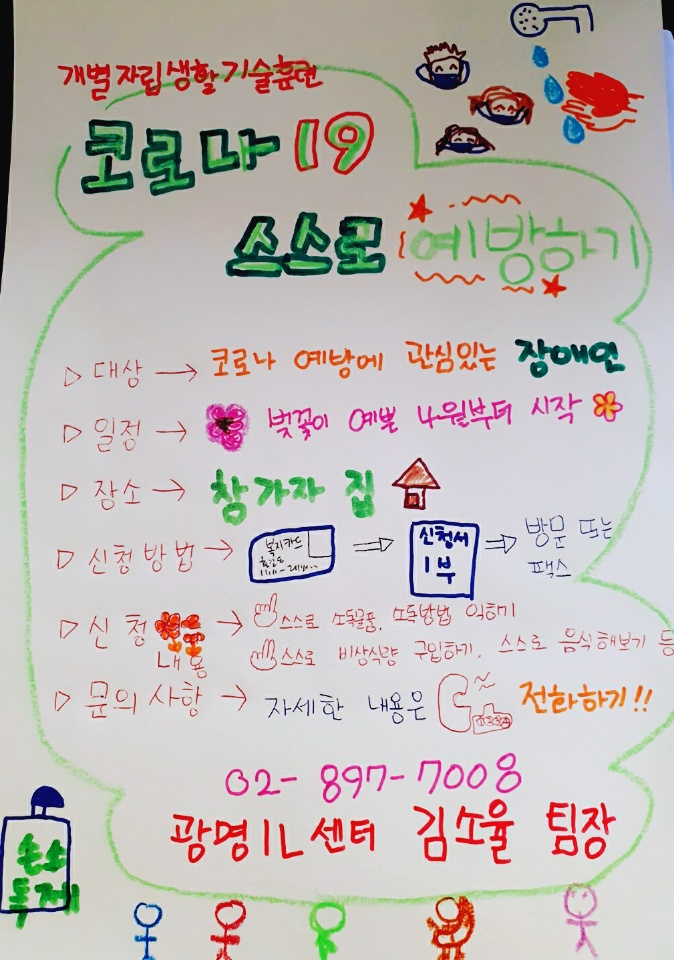 개별자립생활기술훈련
코로나 19
스스로 예방하기
▷ 대상 → 코로나 예방에 관심있는 장애인
▷ 일정 → 벚꽃이 예쁠 4월부터 시작
▷ 장소 → 참가자 집
▷ 신청방법 → 복지카드 ⇒ 신청서 1부 ⇒ 방문 또는 팩스
▷ 신청 내용 → 스스로 소독물품, 소독방법 익히기
스스로 비상식량 구입하기, 스스로 음식해보기 등
▷ 문의사항 → 자세한 내용은 전화하기!!
02-897-7008
광명IL센터 김소율 팀장
손소독제